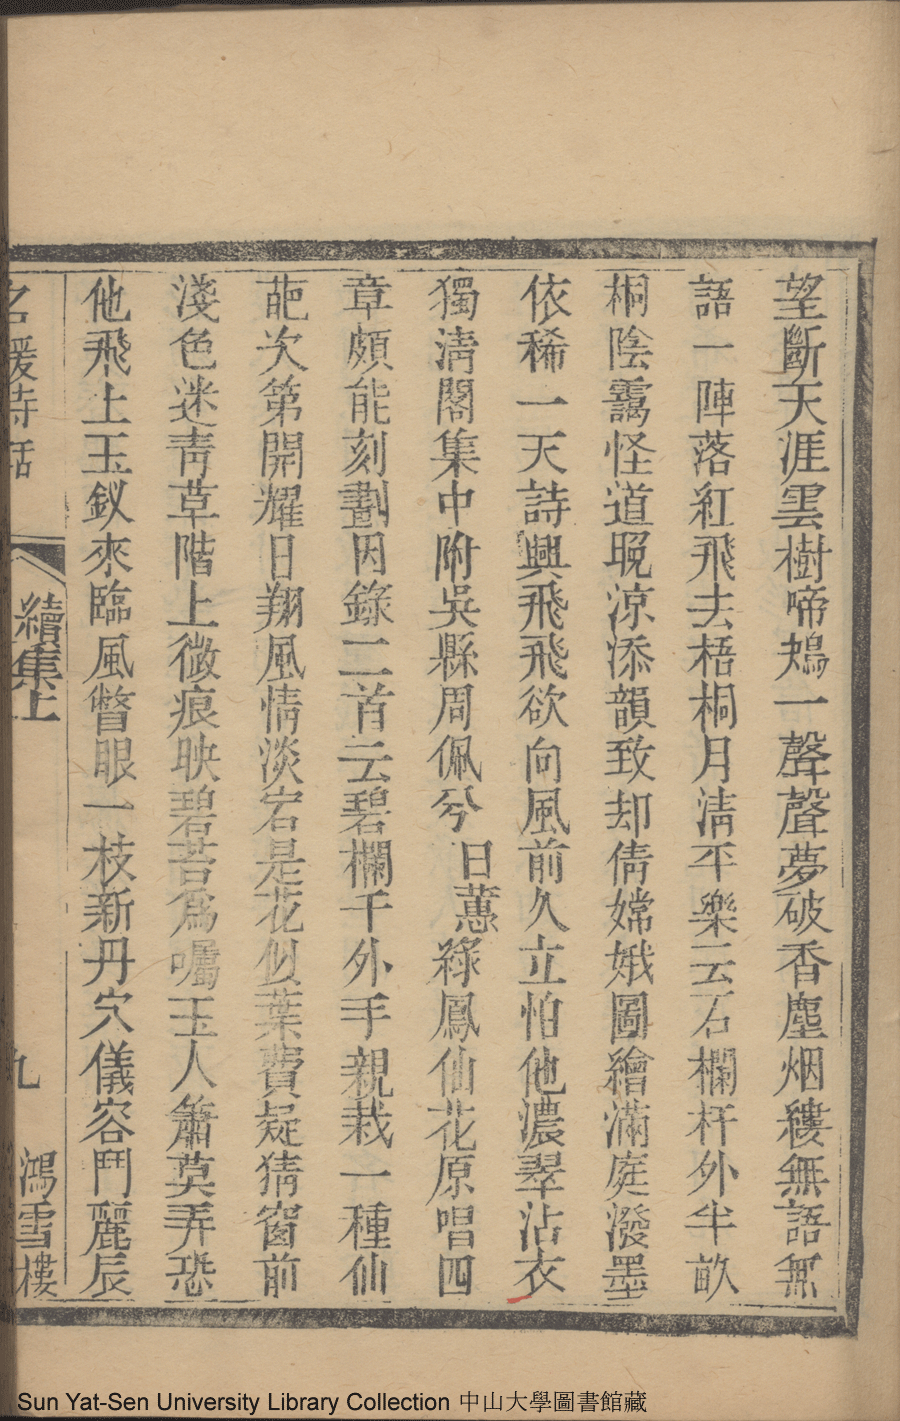 望斷天涯雲樹啼鴂一聲聲夢破香塵烟縷無語無
語一陣落紅飛去梧桐月淸平樂云石欄杆外半畝
桐陰靄怪道晚凉添韻致却倩嫦娥圖繪滿庭潑墨
依稀一天詩興飛飛欲向風前久立怕他濃翠沾衣
獨淸閣集中附吳縣周佩兮日蕙綠鳳仙花原唱四
章頗能刻劃因錄二首云碧欄干外手親栽一種仙
葩次第開耀日翔風情淡宕是花似葉費疑猜窗前
淺色迷靑草階上微痕映碧苔爲囑玉人簫莫弄恐
他飛上玉釵來臨風瞥眼一枝新丹穴儀容鬥麗辰
名媛詩話
續集上
九
鴻雪樓
Sun Yat-Sen University Library Collection 中山大學圖書館藏